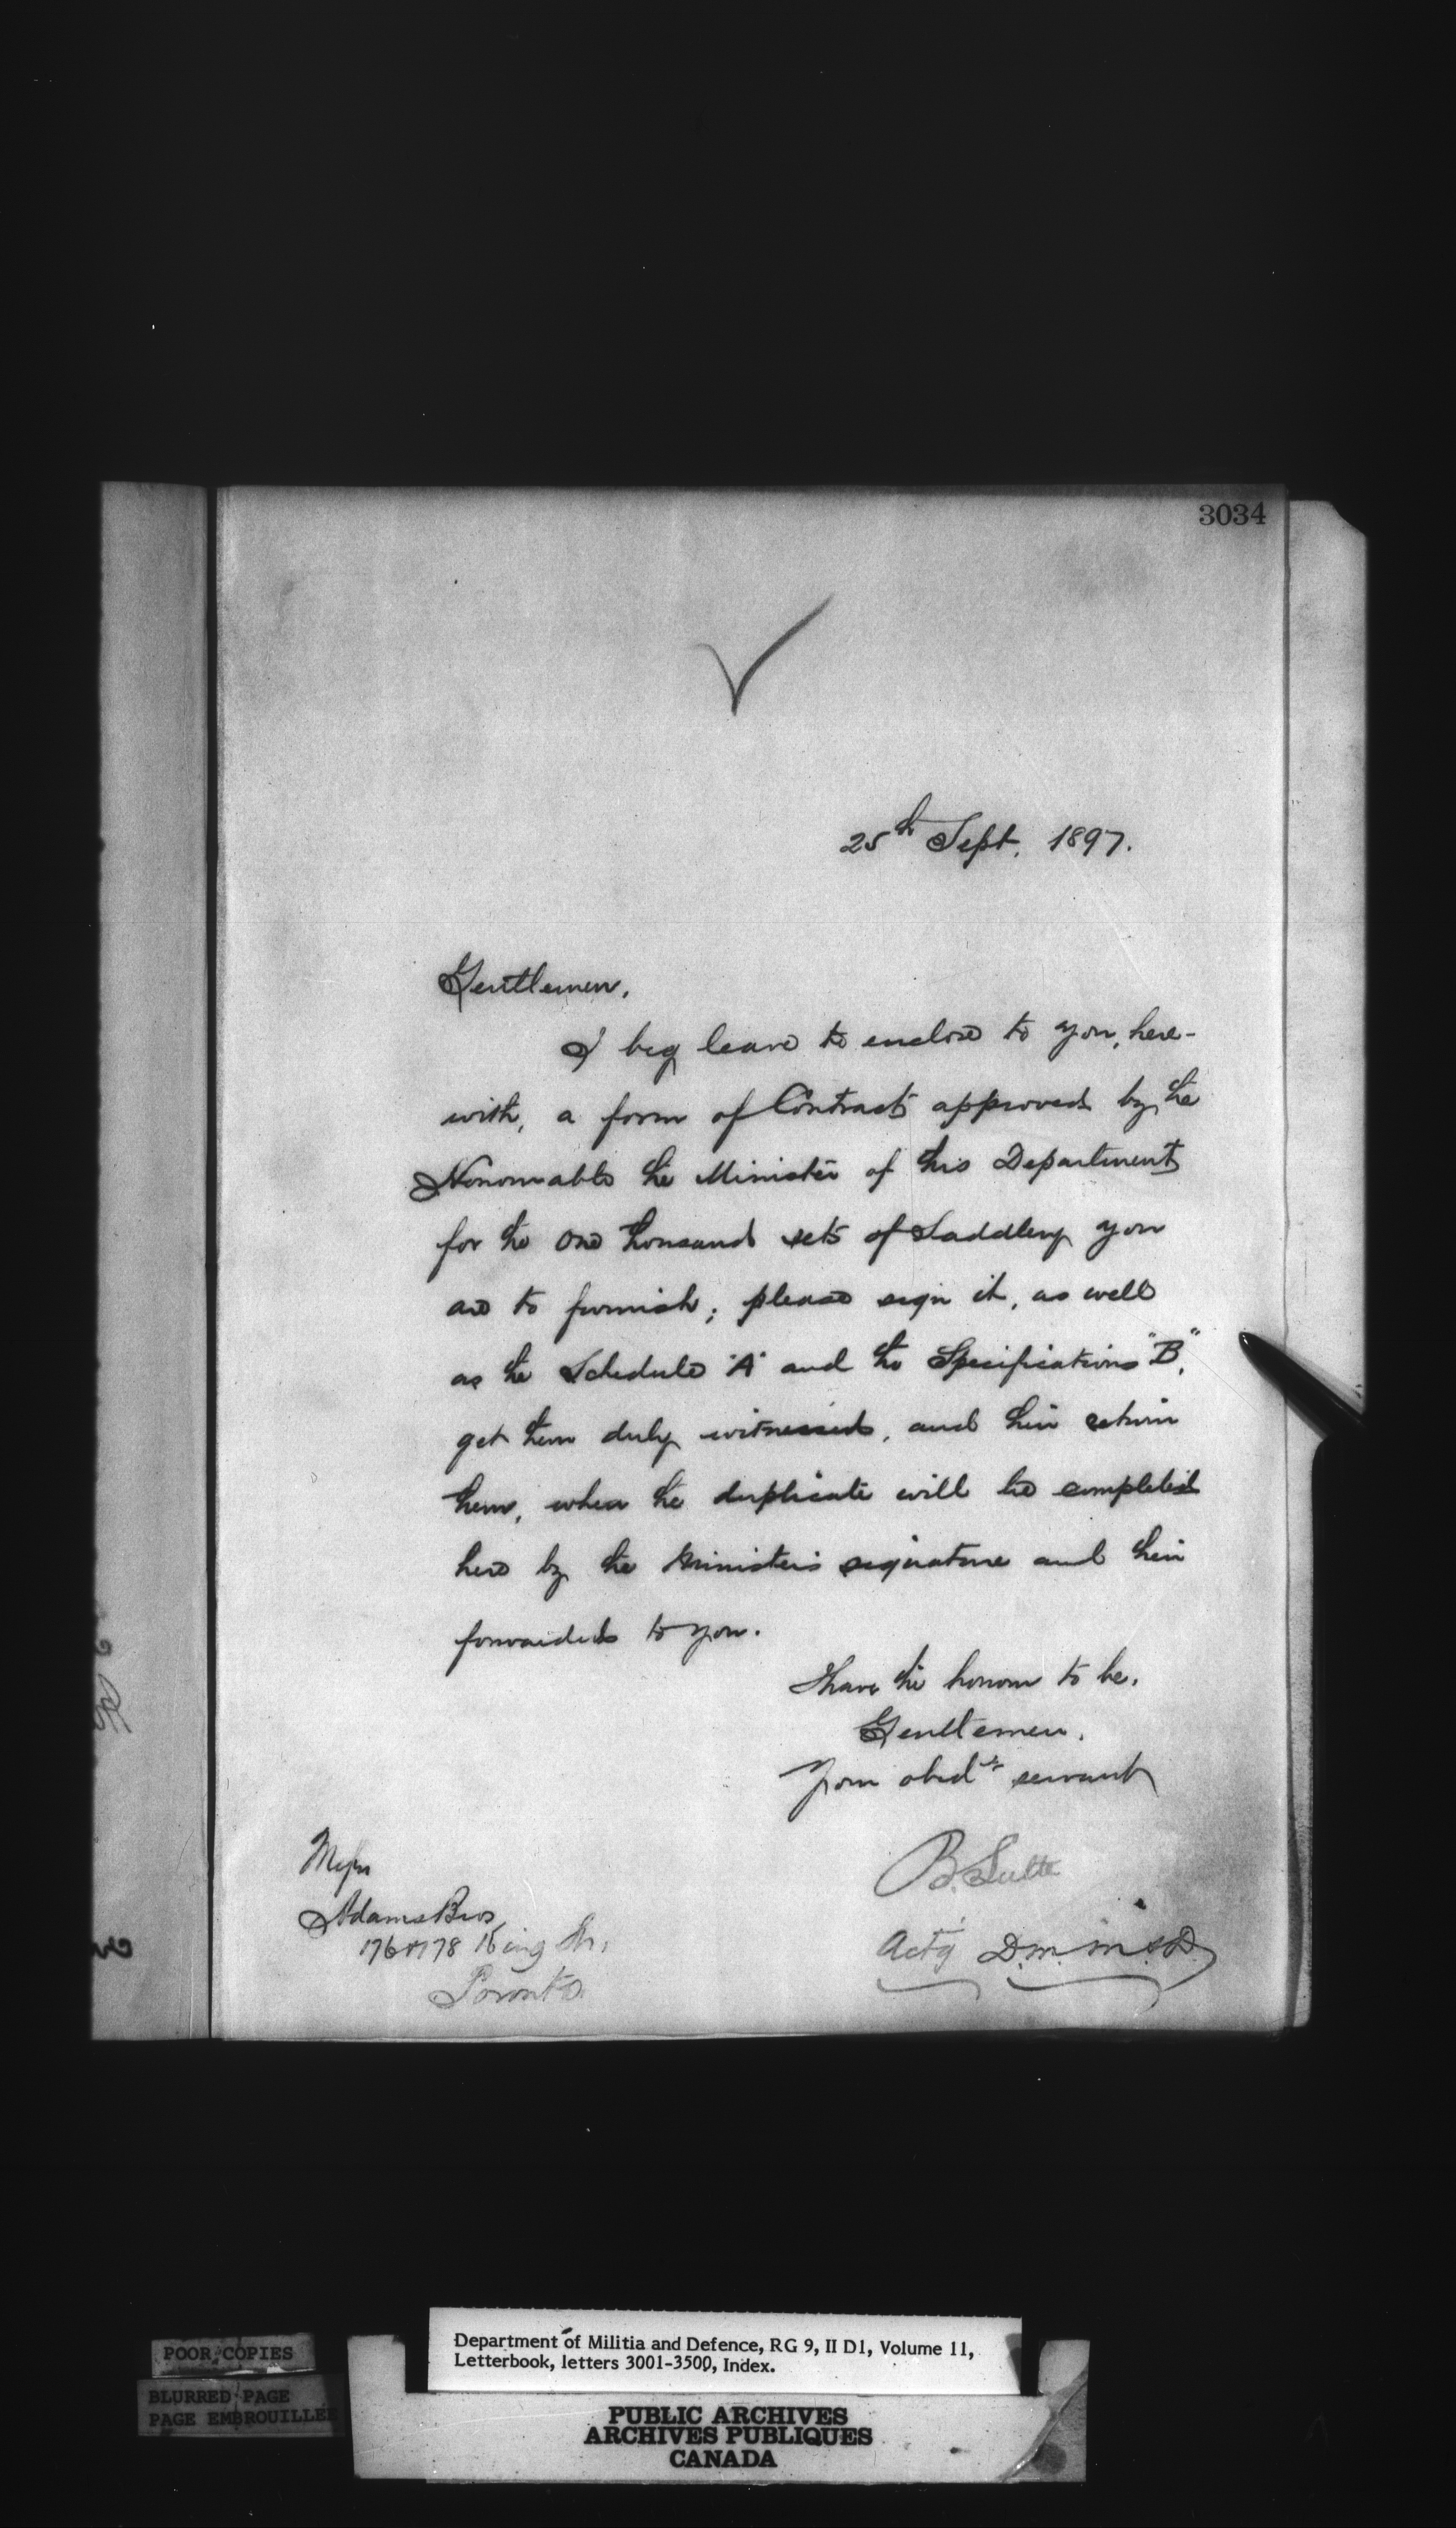 3034
25th Sept. 1897.
Gentlemen,
I beg leave to enclose to you, here-
with, a form of Contract approved by the
Honourable the Minister of this Department
for the one thousand sets of Saddlery you
are to furnish; please sign it, as well
as the Schedule "A" and the Specifications "B",
get them duly witnessed, and then return
them, when the duplicate will be completed
here by the Minister's signature and then
forwarded to you.
I have the honour to be,
Gentlemen,
Your obedt servant
B. Sulte
Actg D.M. M & D.
Messrs
Adams Bros
176 & 178 King St.
Toronto
Department of Militia and Defence, RG 9, II D1, Volume 11,
Letterbook, letters 3001-3500, Index.
POOR COPIES
BLURRED PAGE
PAGE EMBROUILLEE
PUBLIC ARCHIVES
ARCHIVES PUBLIQUES
CANADA